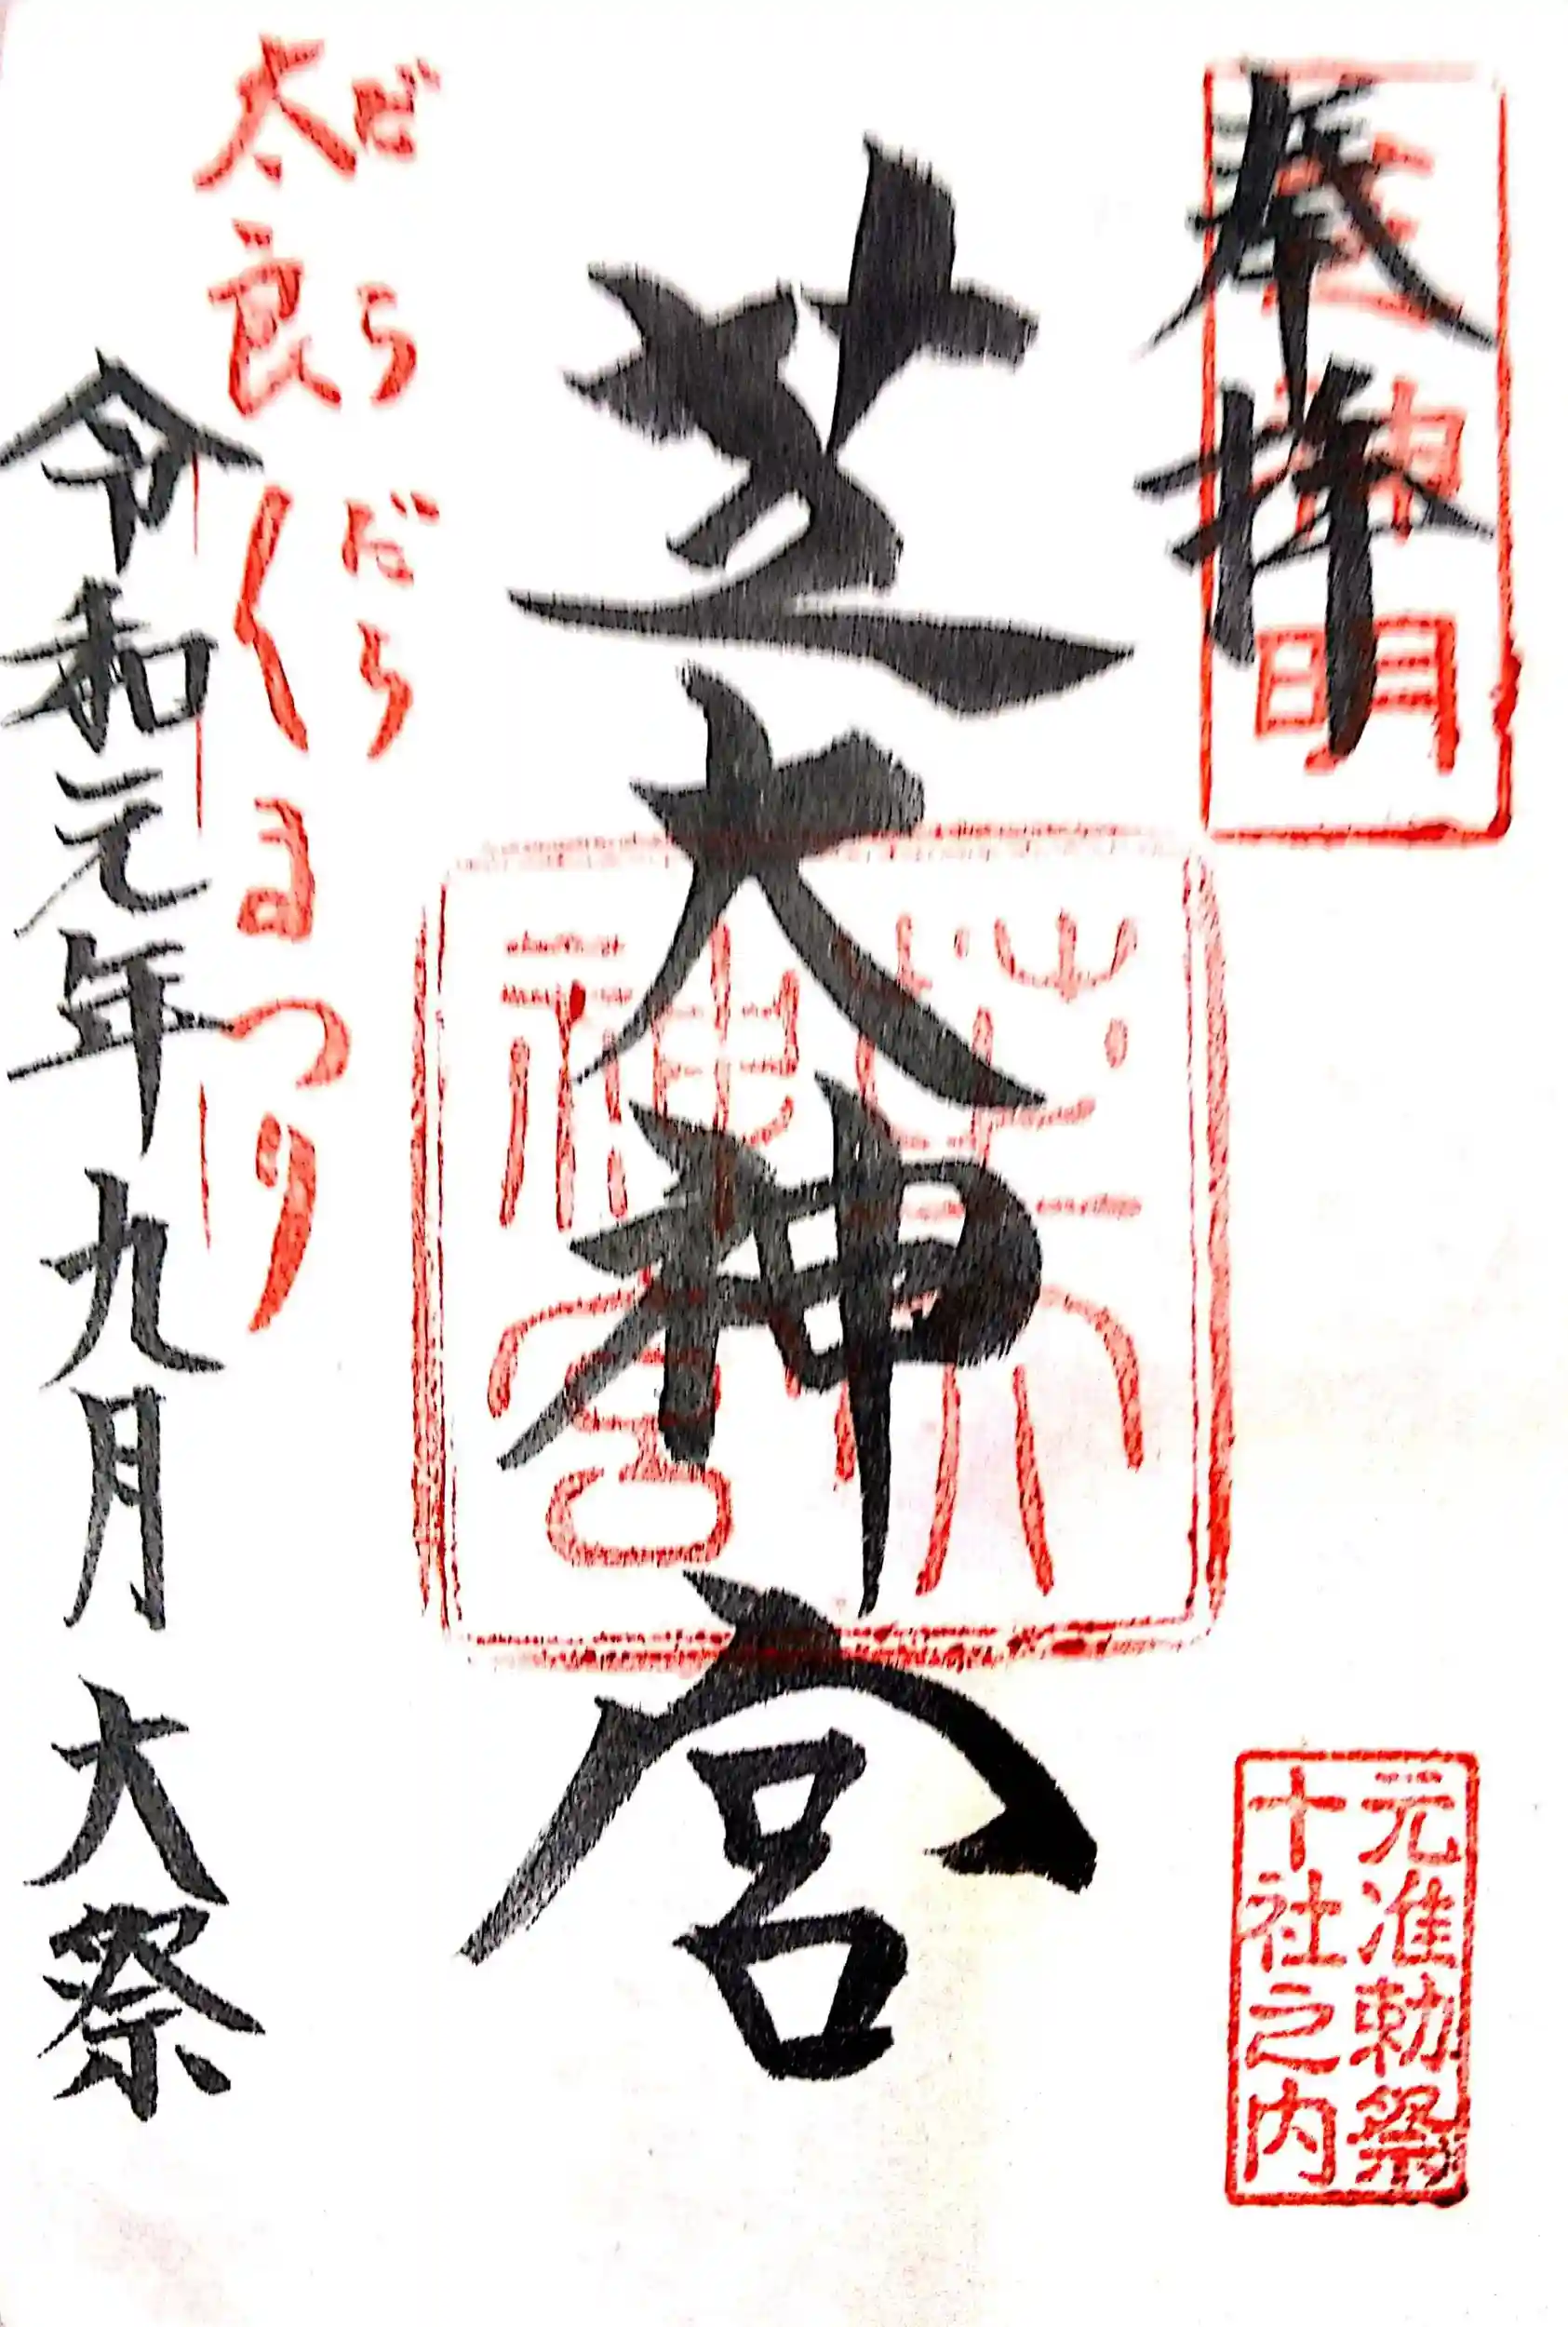 奉拝
芝神明
芝大神宮
芝大神宮
元准勅祭
十社之内
だらだら
太良〱まつり
令和元年九月 大祭